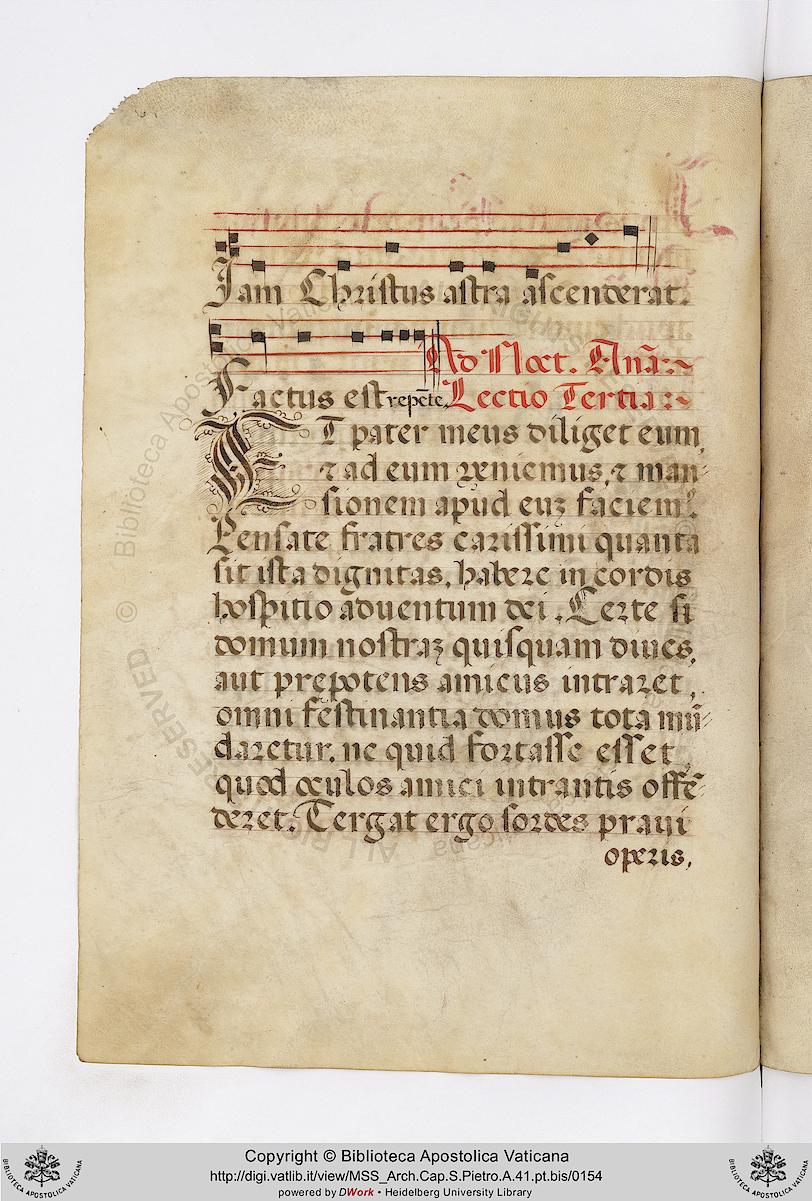 Iam Christus astra ascenderat.
Ad Noct. Anã.
Factus est repẽte, Lectio Tertia.
ET pater meus diliget eum,
⁊ ad eum veniemus, ⁊ man-
sionem apud euʒ faciemꝰ.
Pensate fratres carissimi quanta
sit ista dignitas, habere in cordis
hospitio aduentum dei. Certe si
domum nostraʒ quisquam diues,
aut prepotens amicus intraret,
omni festinantia domus tota mũ-
daretur. ne quid fortasse esset,
quod oculos amici intrantis offẽ-
deret. Tergat ergo sordes praui
operis,
© Biblioteca Apostolica Vaticana ALL RIGHTS RESERVED
Copyright © Biblioteca Apostolica Vaticana
http://digi.vatlib.it/view/MSS_Arch.Cap.S.Pietro.A.41.pt.bis/0154
powered by DWork • Heidelberg University Library
BIBLIOTECA APOSTOLICA VATICANA
BIBLIOTECA APOSTOLICA VATICANA